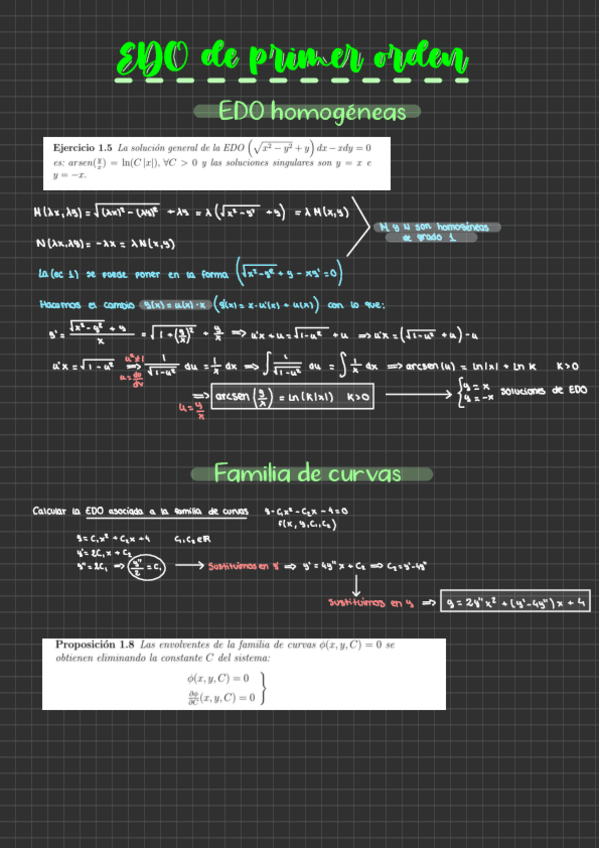 EDO de primer orden
EDO homogéneas
Ejercicio 1.5 La solución general de la EDO (√(x² − y²) + y) dx − xdy = 0
es: arsen(y/x) = ln(C |x|), ∀C > 0 y las soluciones singulares son y = x e
y = −x.
M(λx,λy) = √((λx)² − (λy)²) + λy = λ(√(x² − y²) + y) = λ M(x,y)
M y N son homogéneas
de grado 1
N(λx,λy) = −λx = λN(x,y)
La (ec 1) se puede poner en la forma (√(x² − y²) + y − xy' = 0)
Hacemos el cambio y(x) = u(x)·x (y'(x) = x·u'(x) + u(x)) con lo que:
y' = (√(x² − y²) + y)/x = √(1 + (y/x)²) + y/x ⇒ u'x + u = √(1 − u²) + u ⇒ u'x = (√(1 − u²) + u) − u
u'x = √(1 − u²) ⇒ 1/√(1 − u²) du = 1/x dx ⇒ ∫ 1/√(1 − u²) du = ∫ 1/x dx ⇒ arcsen(u) = ln|x| + ln K K>0
u² ≠ 1
⇒ arcsen(y/x) = ln(K|x|) K>0
u = y/x
{ y = x
y = −x soluciones de EDO
Familia de curvas
Calcular la EDO asociada a la familia de curvas y − C₁x² − C₂x − 4 = 0
f(x, y, C₁, C₂)
y = C₁x² + C₂x + 4 C₁, C₂ ∈ R
y' = 2C₁x + C₂
y'' = 2C₁ ⇒ y''/2 = C₁ → Sustituimos en y' ⇒ y' = 4y''x + C₂ ⇒ C₂ = y' − 4y''
Sustituimos en y ⇒ y = 2y''x² + (y' − 4y'')x + 4
Proposición 1.8 Las envolventes de la familia de curvas ϕ(x, y, C) = 0 se
obtienen eliminando la constante C del sistema:
ϕ(x, y, C) = 0
∂ϕ/∂C (x, y, C) = 0 }